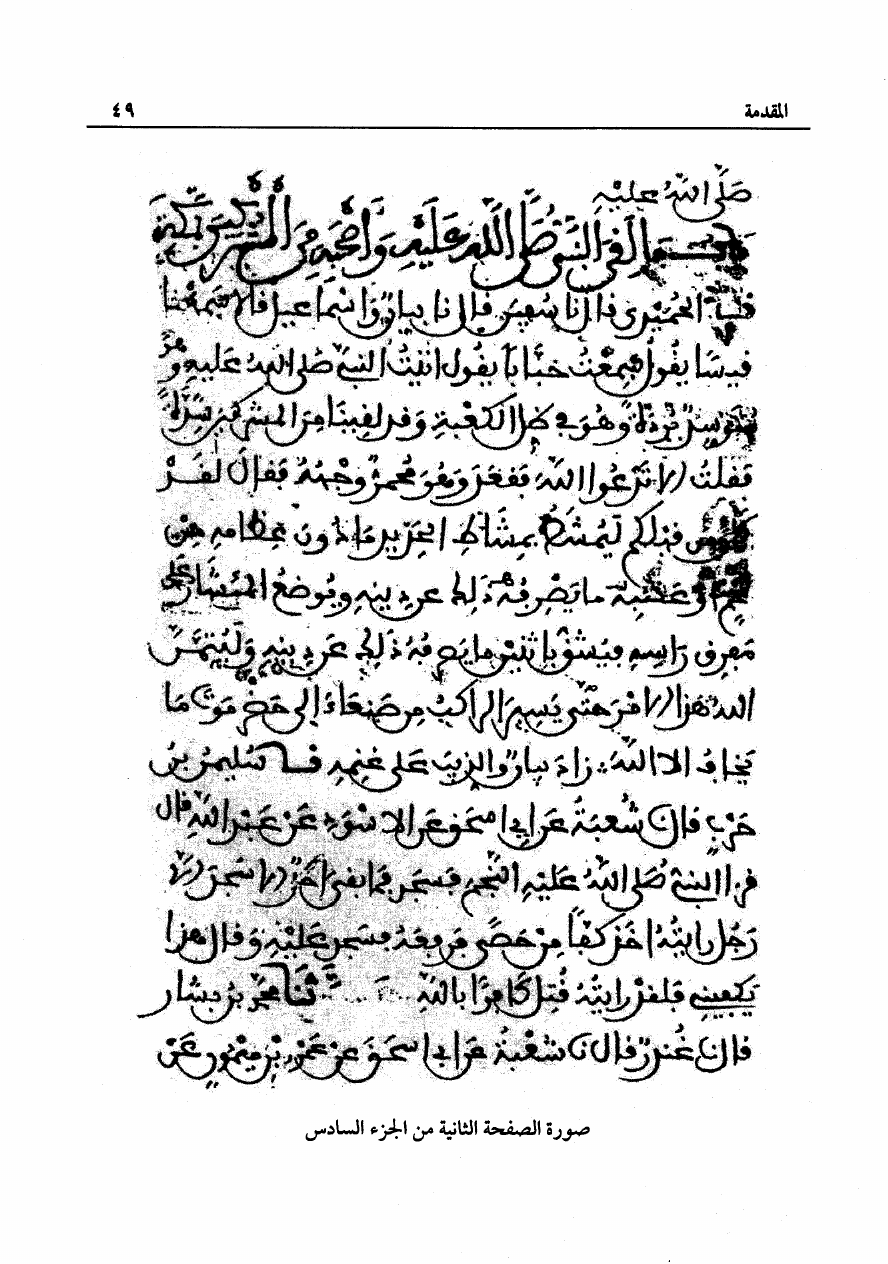 المقدمة ٤٩
صلى الله عليه
ما لقي النبي صلى الله عليه وأصحابه من المشركين بمكة
الحميدي قال نا سفين قال نا بيان وإسماعيل قالا سمعنا
قيسا يقول سمعت خبابا يقول أتيت النبي صلى الله عليه وهو
متوسد بردة وهو في ظل الكعبة وقد لقينا من المشركين شدة
فقلت ألا تدعوا الله فقعد وهو محمر وجهه فقال لقد
كان من قبلكم ليمشط بمشاط الحديد ما دون عظامه من
لحم أو عصب ما يصرفه ذلك عن دينه ويوضع المنشار على
مفرق راسه فيشق باثنين ما يصرفه ذلك عن دينه وليتمن
الله هذا الامر حتى يسير الراكب من صنعاء إلى حضرموت ما
يخاف الا الله زاد بيان والذيب على غنمه نا سليمن بن
حرب قال نا شعبة عن أبي اسحق عن الاسود عن عبد الله قال
قرا النبي صلى الله عليه النجم فسجد فما بقي أحد الا سجد الا
رجل رايته اخذ كفا من حصى فرفعه فسجد عليه وقال هذا
يكفيني فلقد رايته قتل كافرا بالله نا محمد بن بشار
قال نا غندر قال نا شعبة عن أبي اسحق عن عمرو بن ميمون عن
صورة الصفحة الثانية من الجزء السادس